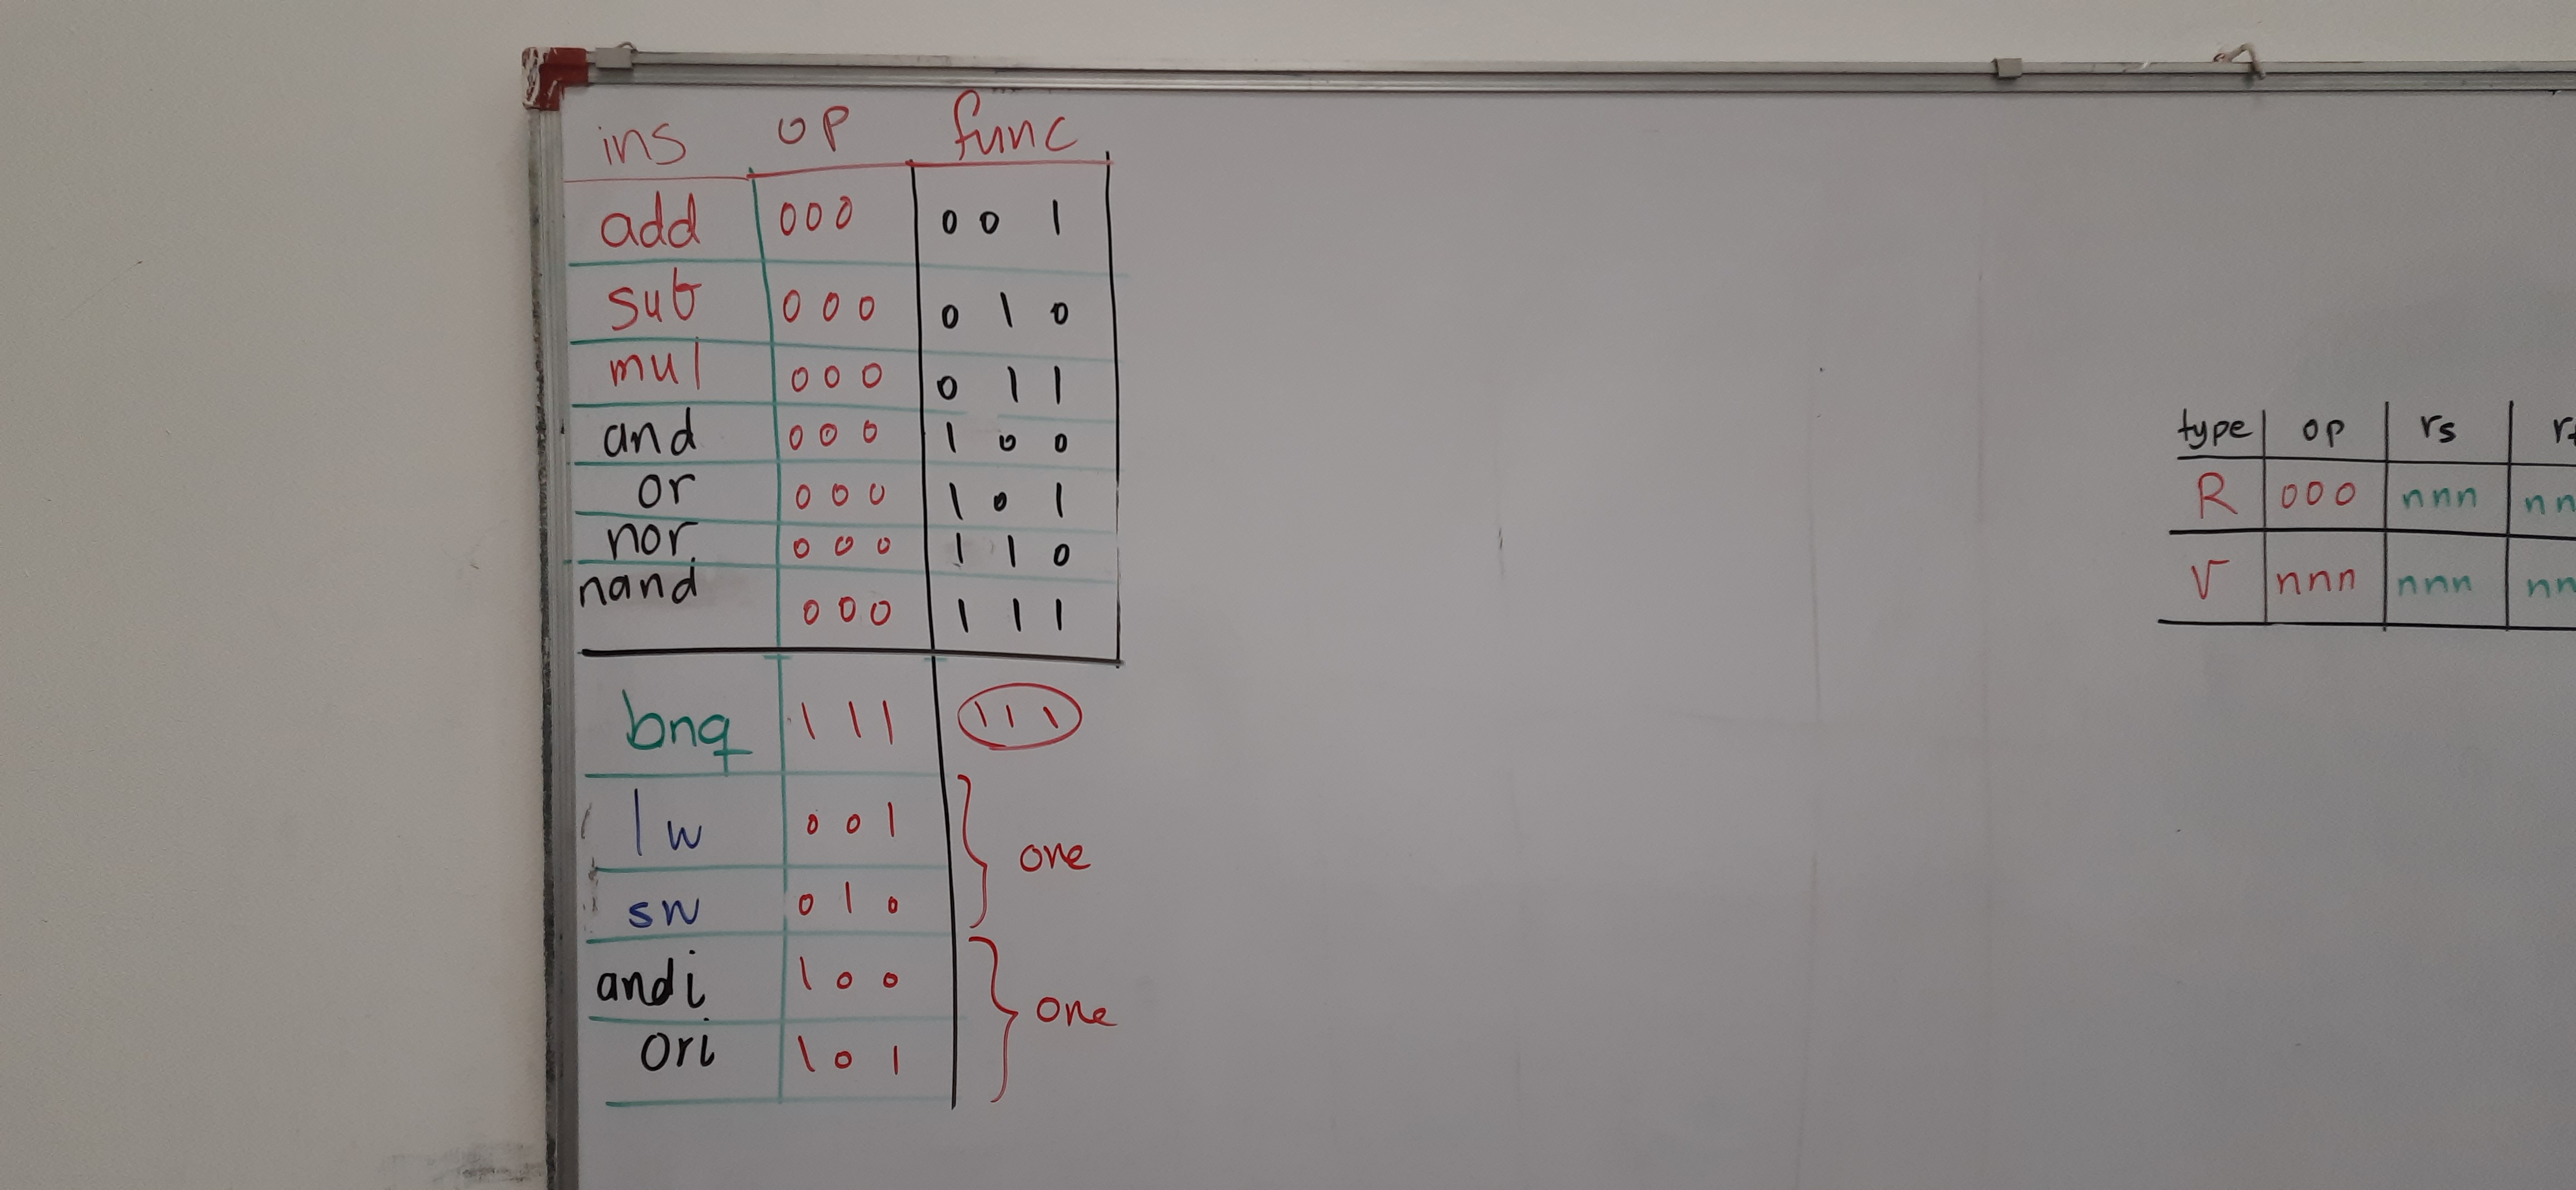 ins op func
add 000 001
sub 000 010
mul 000 011
and 000 100
or 000 101
nor 000 110
nand 000 111
bnq 111 111
lw 001
one
sw 010
andi 100
one
ori 101
type op rs
R 000 nnn nn
V nnn nnn nn